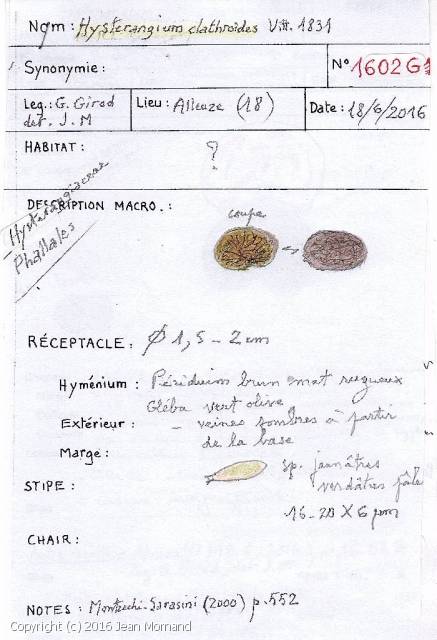 Nom : Hysterangium clathroides Vitt. 1831
Synonymie :
N° 1602G1
Leg. : G. Girod
det. J. M
Lieu : Alleuze (18)
Date : 18/6/2016
HABITAT : ?
Hysterangiaceae
Phallales
DESCRIPTION MACRO. :
coupe
RÉCEPTACLE : Ø 1,5 - 2 cm
Hyménium : Péridium brun mat rugueux
Gléba vert olive
Extérieur : - veines sombres à partir
de la base
Marge :
sp. jaunâtres
STIPE : verdâtres pâle
16-20 X 6 µm
CHAIR :
NOTES : Montecchi-Sarasini (2000) p.552
Copyright (c) 2016 Jean Mornand